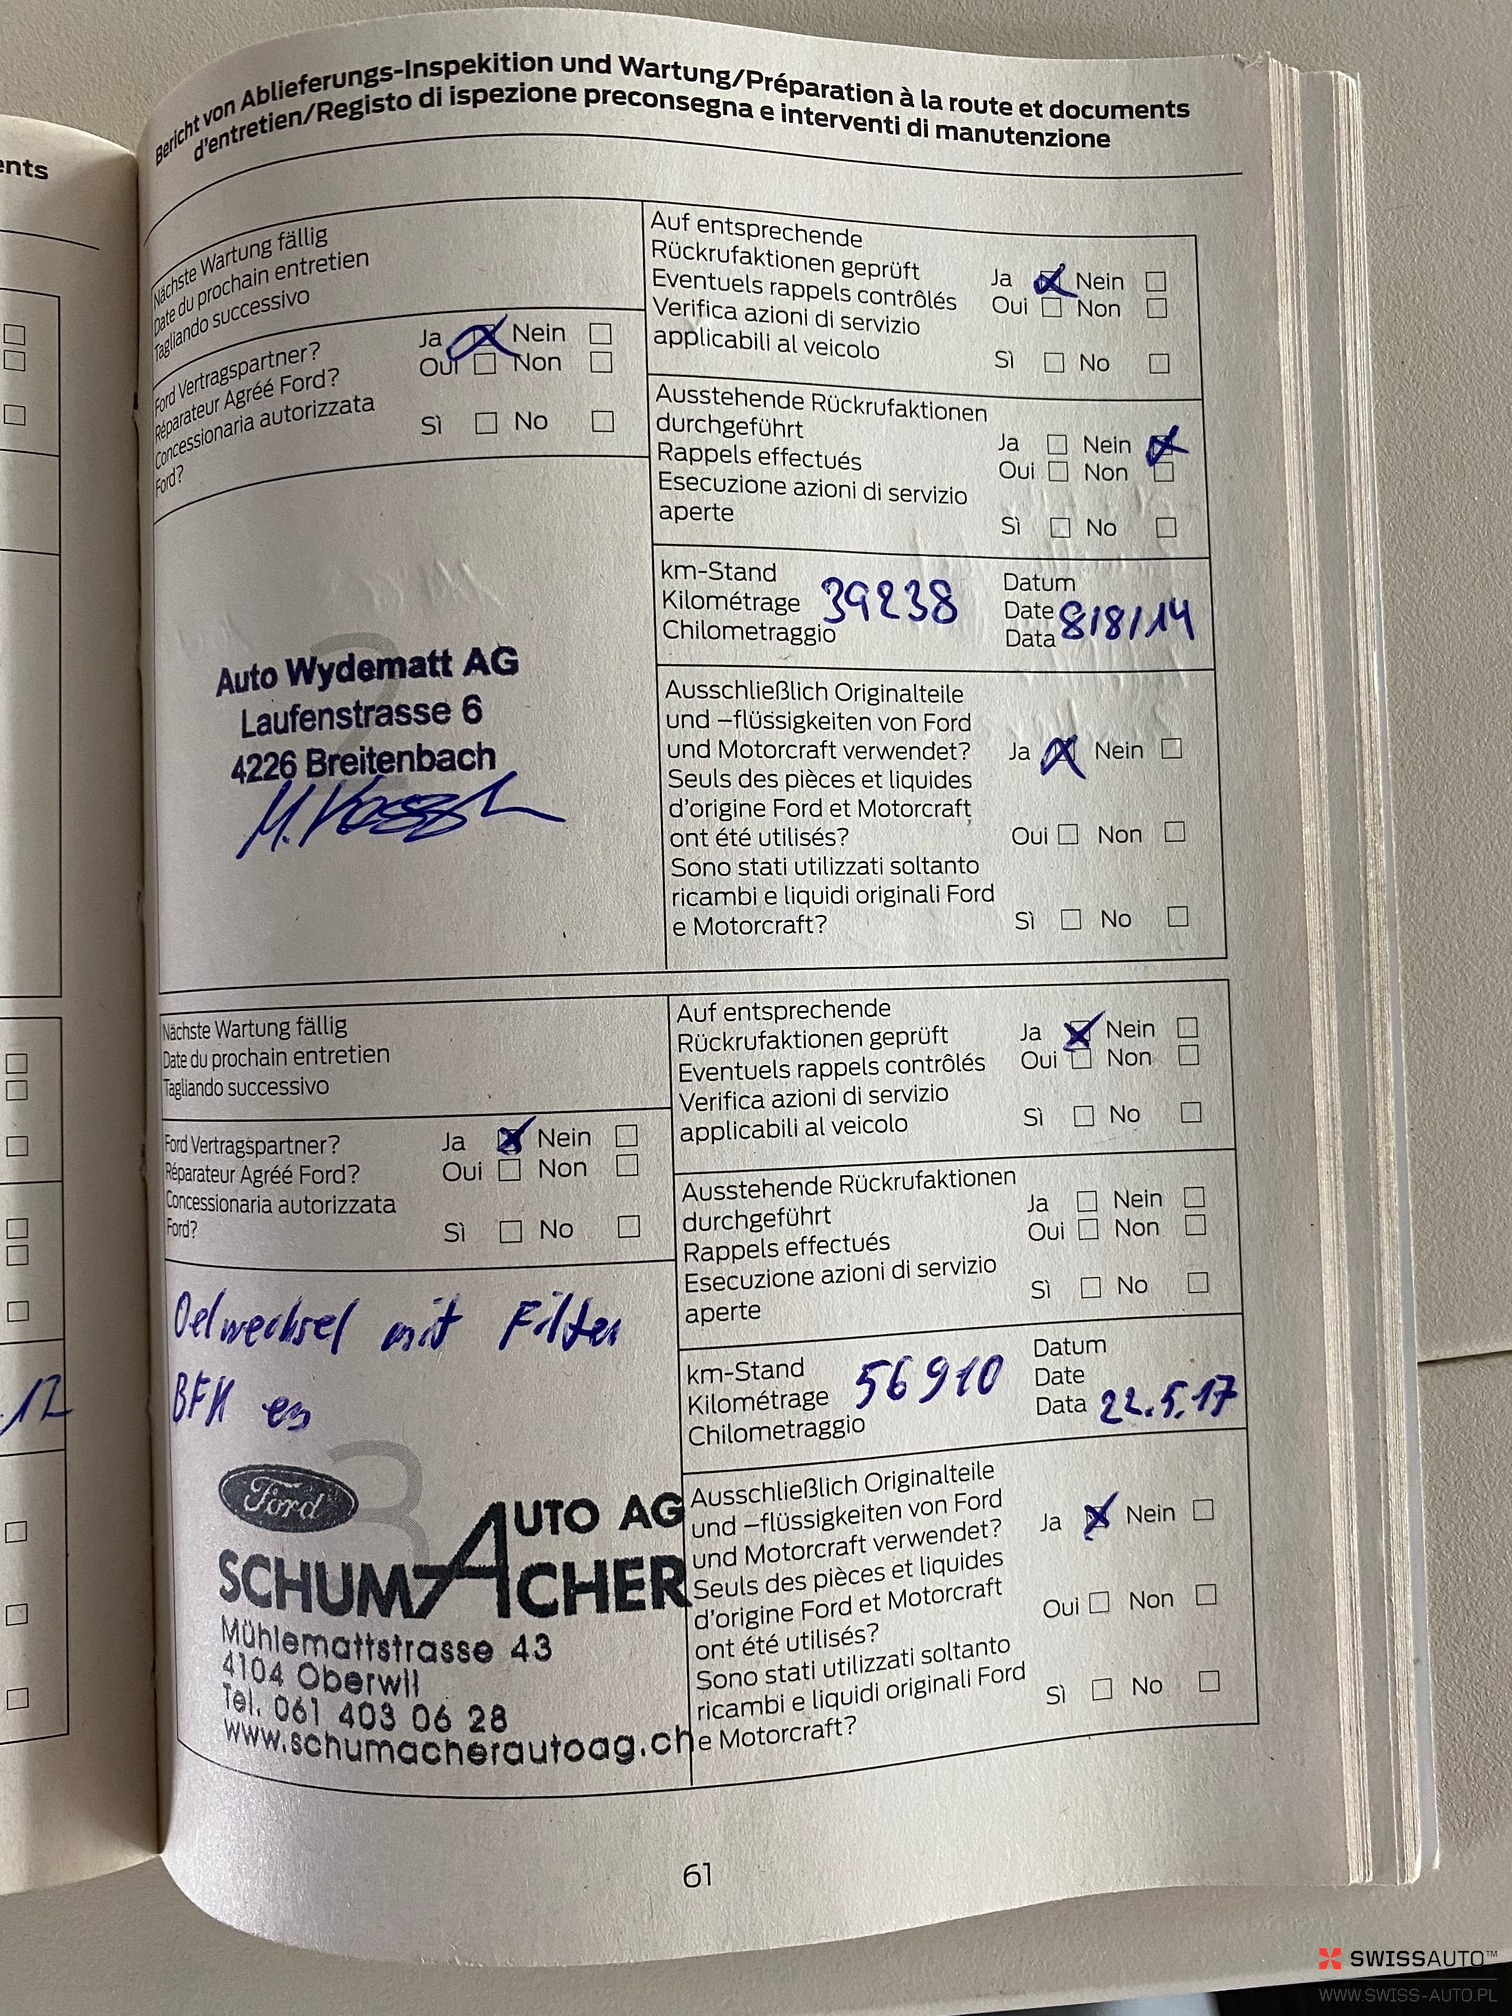 ents
.12
Bericht von Ablieferungs-Inspekition und Wartung/Préparation à la route et documents
d'entretien/Registo di ispezione preconsegna e interventi di manutenzione
Nächste Wartung fällig
Date du prochain entretien
Tagliando successivo
Ford Vertragspartner?
Réparateur Agréé Ford?
Concessionaria autorizzata
Ford?
Ja Nein
Oui Non
Sì No
2
Auto Wydematt AG
Laufenstrasse 6
4226 Breitenbach
Auf entsprechende
Rückrufaktionen geprüft
Eventuels rappels contrôlés
Verifica azioni di servizio
applicabili al veicolo
Ja Nein
Oui Non
Sì No
Ausstehende Rückrufaktionen
durchgeführt
Rappels effectués
Esecuzione azioni di servizio
aperte
Ja Nein
Oui Non
Sì No
km-Stand
Kilométrage
Chilometraggio
39238
Datum
Date
Data
8/8/14
Ausschließlich Originalteile
und –flüssigkeiten von Ford
und Motorcraft verwendet?
Seuls des pièces et liquides
d'origine Ford et Motorcraft
ont été utilisés?
Sono stati utilizzati soltanto
ricambi e liquidi originali Ford
e Motorcraft?
Ja Nein
Oui Non
Sì No
Nächste Wartung fällig
Date du prochain entretien
Tagliando successivo
Ford Vertragspartner?
Réparateur Agréé Ford?
Concessionaria autorizzata
Ford?
Ja Nein
Oui Non
Sì No
Oelwechsel mit Filter
3
Ford
AUTO AG
SCHUMACHER
Mühlemattstrasse 43
4104 Oberwil
Tel. 061 403 06 28
www.schumacherautoag.ch
Auf entsprechende
Rückrufaktionen geprüft
Eventuels rappels contrôlés
Verifica azioni di servizio
applicabili al veicolo
Ja Nein
Oui Non
Sì No
Ausstehende Rückrufaktionen
durchgeführt
Rappels effectués
Esecuzione azioni di servizio
aperte
Ja Nein
Oui Non
Sì No
km-Stand
Kilométrage
Chilometraggio
56910
Datum
Date
Data
22.5.17
Ausschließlich Originalteile
und –flüssigkeiten von Ford
und Motorcraft verwendet?
Seuls des pièces et liquides
d'origine Ford et Motorcraft
ont été utilisés?
Sono stati utilizzati soltanto
ricambi e liquidi originali Ford
e Motorcraft?
Ja Nein
Oui Non
Sì No
61
SWISSAUTO™
WWW.SWISS-AUTO.PL